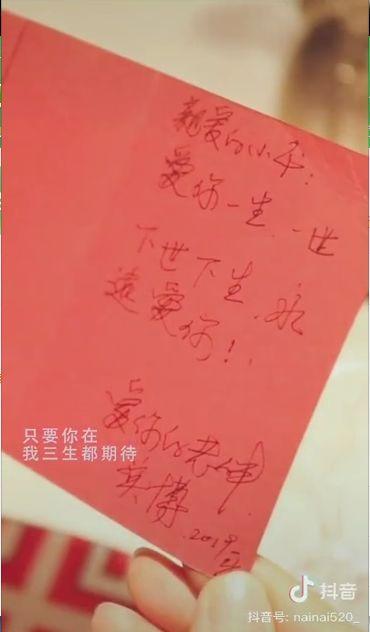 親爱的小平:
爱你一生一世
下世下生.永
遠爱你!
爱你的老伴
2019
只要你在
我三生都期待
抖音
抖音号: nainai520_